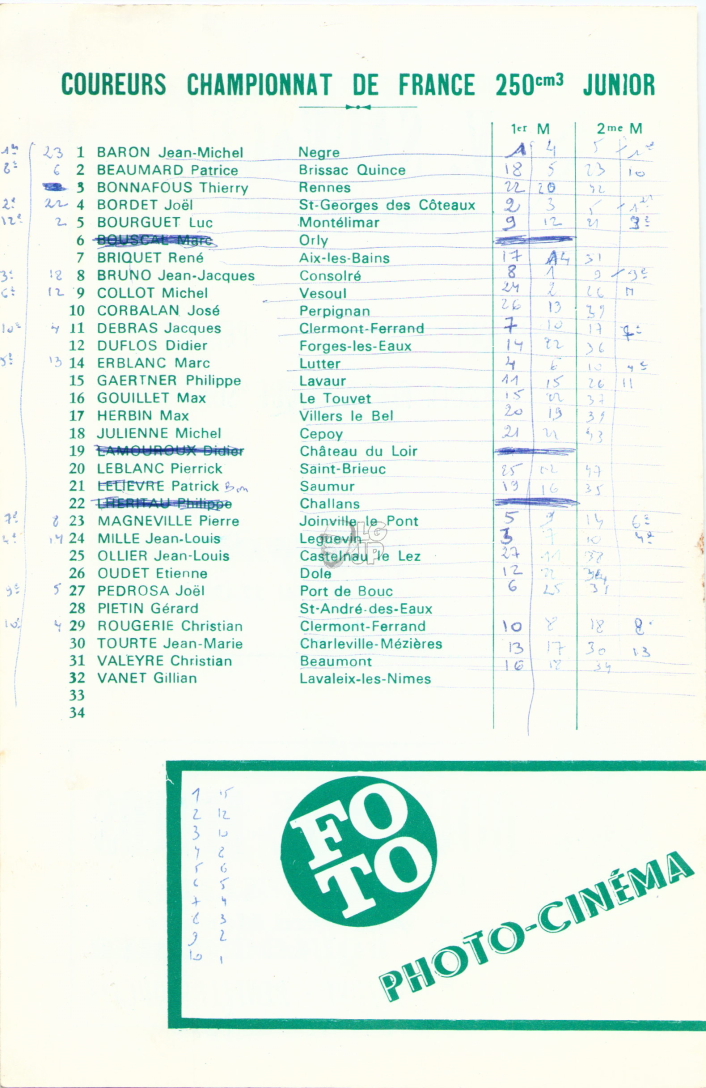 COUREURS CHAMPIONNAT DE FRANCE 250cm3 JUNIOR
1er M 2me M
1e 23 1 BARON Jean-Michel Negre 1 4 5 1e
8e 6 2 BEAUMARD Patrice Brissac Quince 18 5 23 10
3 BONNAFOUS Thierry Rennes 22 20 42
2e 22 4 BORDET Joël St-Georges des Côteaux 2 3 5 1e
12e 2 5 BOURGUET Luc Montélimar 9 12 21 9e
6 BOUSCAL Marc Orly
7 BRIQUET René Aix-les-Bains 17 14 31
3e 18 8 BRUNO Jean-Jacques Consolré 8 1 9 3e
6e 12 9 COLLOT Michel Vesoul 24 2 26 11
10 CORBALAN José Perpignan 26 13 39
10e 4 11 DEBRAS Jacques Clermont-Ferrand 7 10 17 7e
12 DUFLOS Didier Forges-les-Eaux 14 22 36
5e 13 14 ERBLANC Marc Lutter 4 6 10 4e
15 GAERTNER Philippe Lavaur 11 15 26 11
16 GOUILLET Max Le Touvet 15 22 37
17 HERBIN Max Villers le Bel 20 19 39
18 JULIENNE Michel Cepoy 21 22 43
19 LAMOUROUX Didier Château du Loir
20 LEBLANC Pierrick Saint-Brieuc 25 22 47
21 LELIEVRE Patrick Saumur 19 16 35
22 LHERITAU Philippe Challans
7e 8 23 MAGNEVILLE Pierre Joinville le Pont 5 9 14 6e
4e 14 24 MILLE Jean-Louis Leguevin 3 7 10 4e
25 OLLIER Jean-Louis Castelnau le Lez 27 11 38
26 OUDET Etienne Dole 12 22 34
9e 5 27 PEDROSA Joël Port de Bouc 6 25 31
28 PIETIN Gérard St-André-des-Eaux
10e 4 29 ROUGERIE Christian Clermont-Ferrand 10 8 18 8e
30 TOURTE Jean-Marie Charleville-Mézières 13 17 30 13
31 VALEYRE Christian Beaumont 16 18 34
32 VANET Gillian Lavaleix-les-Nimes
33
34
LG UP
1 15
2 12
3 10
4 8
5 6
6 5
7 4
8 3
9 2
10 1
FO
TO
PHOTO-CINÉMA